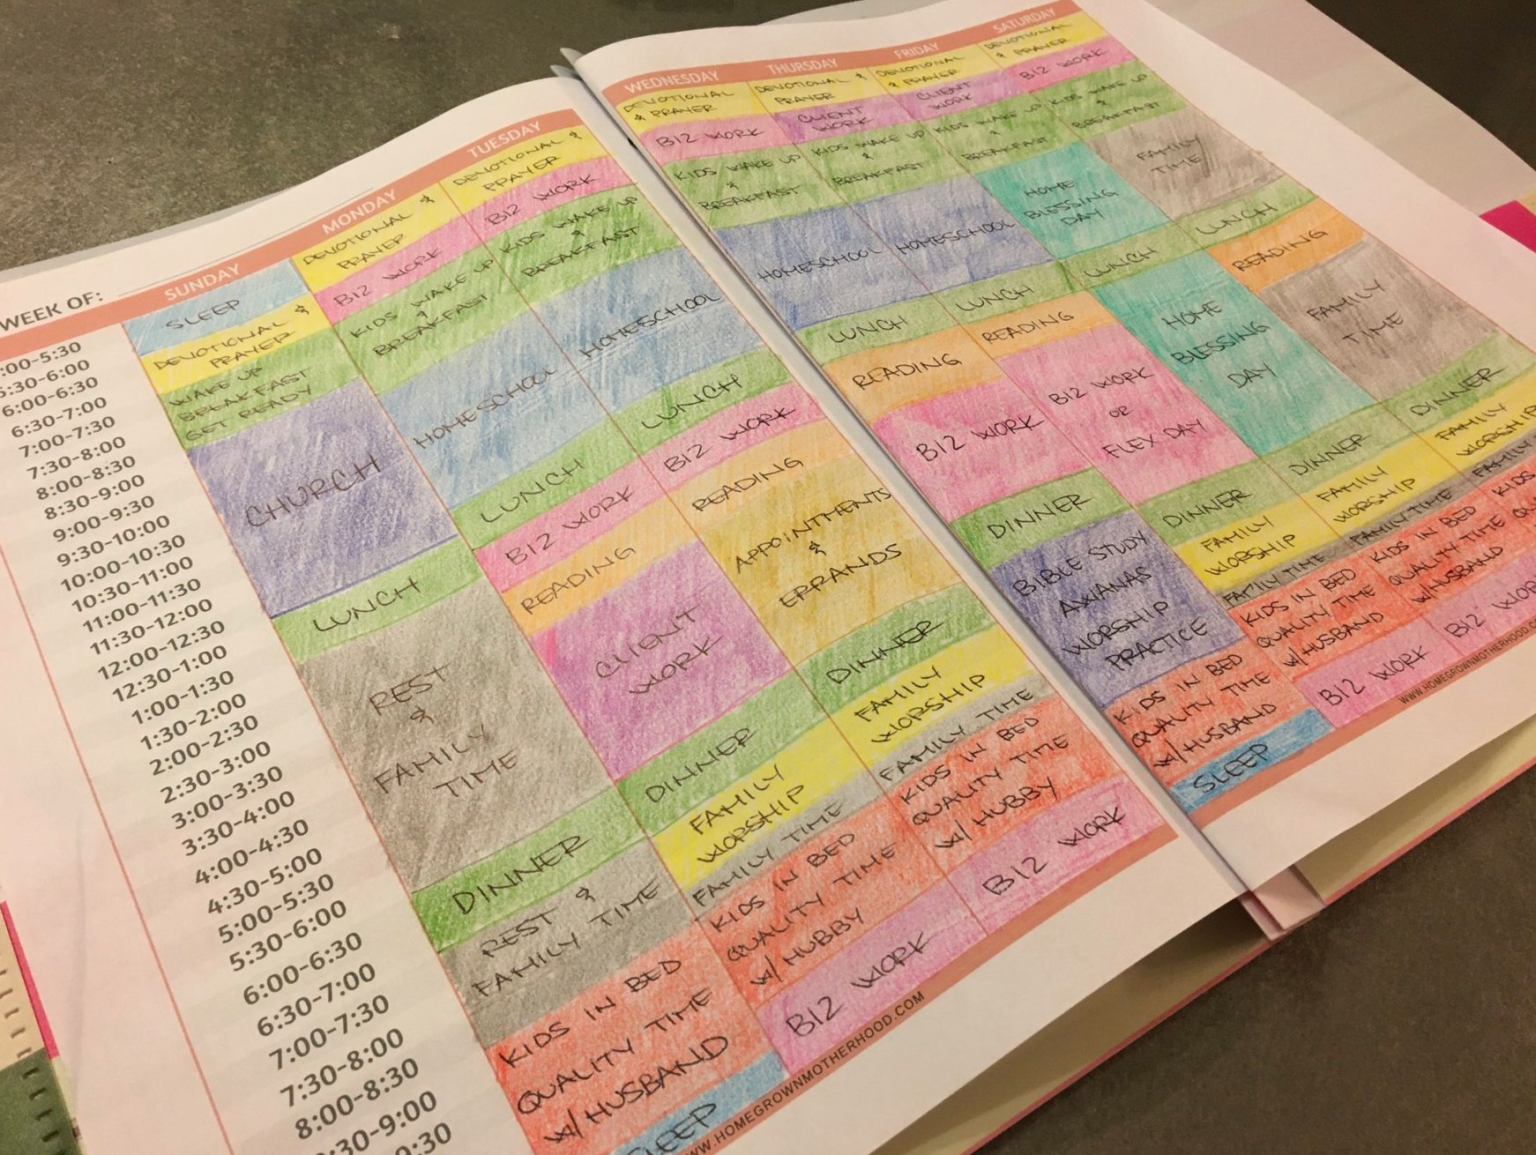 WEEK OF:
:00-5:30
5:30-6:00
6:00-6:30
6:30-7:00
7:00-7:30
7:30-8:00
8:00-8:30
8:30-9:00
9:00-9:30
9:30-10:00
10:00-10:30
10:30-11:00
11:00-11:30
11:30-12:00
12:00-12:30
12:30-1:00
1:00-1:30
1:30-2:00
2:00-2:30
2:30-3:00
3:00-3:30
3:30-4:00
4:00-4:30
4:30-5:00
5:00-5:30
5:30-6:00
6:00-6:30
6:30-7:00
7:00-7:30
7:30-8:00
8:00-8:30
:30-9:00
9:30
SUNDAY
SLEEP
DEVOTIONAL &
PRAYER
WAKE UP
BREAKFAST
GET READY
CHURCH
LUNCH
REST
&
FAMILY
TIME
DINNER
REST &
FAMILY TIME
KIDS IN BED
QUALITY TIME
W/ HUSBAND
SLEEP
MONDAY
DEVOTIONAL &
PRAYER
BIZ WORK
KIDS WAKE UP
&
BREAKFAST
HOMESCHOOL
LUNCH
BIZ WORK
READING
CLIENT
WORK
DINNER
FAMILY
WORSHIP
FAMILY TIME
KIDS IN BED
QUALITY TIME
W/ HUBBY
BIZ WORK
TUESDAY
DEVOTIONAL &
PRAYER
BIZ WORK
KIDS WAKE UP
&
BREAKFAST
HOMESCHOOL
LUNCH
BIZ WORK
READING
APPOINTMENTS
&
ERRANDS
DINNER
FAMILY
WORSHIP
FAMILY TIME
KIDS IN BED
QUALITY TIME
W/ HUBBY
BIZ WORK
WW.HOMEGROWNMOTHERHOOD.COM
WEDNESDAY
DEVOTIONAL
& PRAYER
BIZ WORK
KIDS WAKE UP
&
BREAKFAST
HOMESCHOOL
LUNCH
READING
BIZ WORK
DINNER
BIBLE STUDY
AWANAS
WORSHIP
PRACTICE
KIDS IN BED
QUALITY TIME
W/ HUSBAND
SLEEP
THURSDAY
DEVOTIONAL &
PRAYER
CLIENT
WORK
KIDS WAKE UP
&
BREAKFAST
HOMESCHOOL
LUNCH
READING
BIZ WORK
OR
FLEX DAY
DINNER
FAMILY
WORSHIP
FAMILY TIME
KIDS IN BED
QUALITY TIME
W/ HUSBAND
BIZ WORK
FRIDAY
DEVOTIONAL
& PRAYER
CLIENT
WORK
KIDS WAKE UP
&
BREAKFAST
HOME
BLESSING
DAY
LUNCH
HOME
BLESSING
DAY
DINNER
FAMILY
WORSHIP
FAMILY TIME
KIDS IN BED
QUALITY TIME
W/ HUSBAND
BIZ WOR
SATURDAY
DEVOTIONAL
& PRAYER
BIZ WORK
KIDS WAKE UP
&
BREAKFAST
FAMILY
TIME
LUNCH
READING
FAMILY
TIME
DINNER
FAMILY
WORSHIP
FAMILY
KIDS
WWW.HOMEGROWNMOTHERHOOD